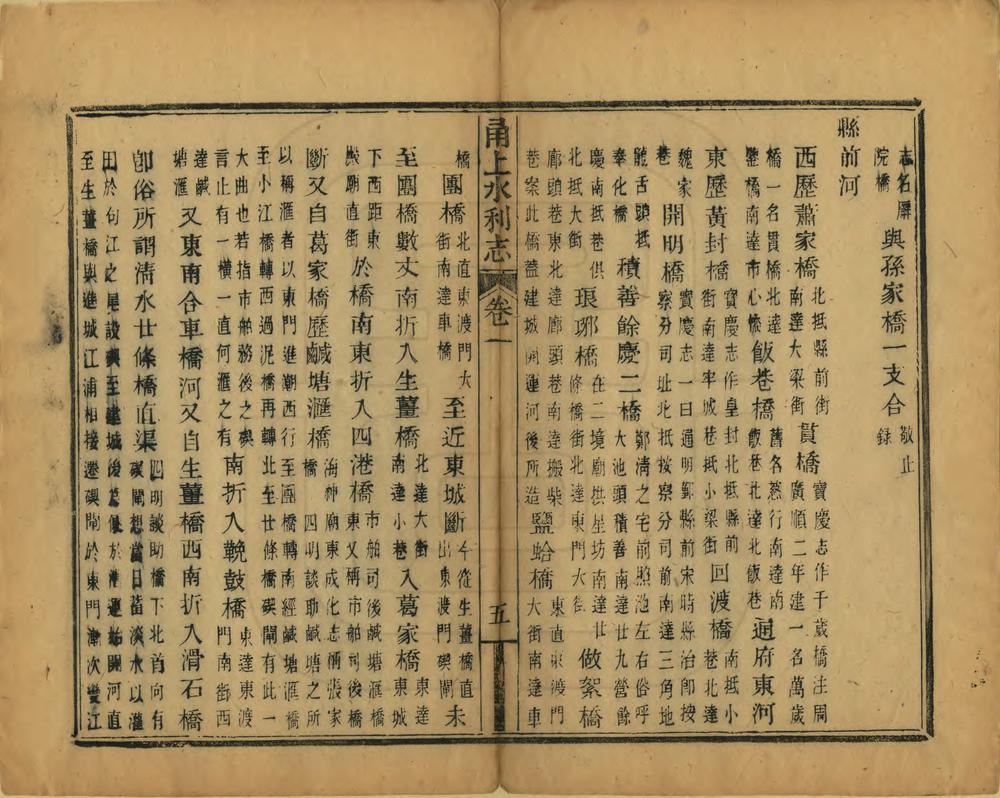 志名廨院橋與孫家橋一支合敬止錄
縣前河
西歷蕭家橋北抵縣前街南達大梁街貫橋寶慶志作千歲橋注周廣順二年建一名萬歲
橋一名貫橋北達南達市心橋飯巷橋舊名葱行南達南飯巷北達北飯巷通府東河
東歷黃封橋寶慶志作皇封北抵縣前街南達牢城巷抵小梁街回渡橋南抵小巷北達
魏家巷開明橋寶慶志一曰通明鄞縣前宋時縣治卽按察分司址北抵按察分司前南達三角地
龍舌頭抵奉化橋積善餘慶二橋鄭清之宅前照池左右俗呼大池頭積善南達廿九營餘
慶南抵巷俱北抵大街琅琊橋在二境廟拱星坊南達廿條橋街北達東門大街做絮橋
廊頭巷東北達廊頭巷南達搬柴巷案此橋蓋建城開運河後所造鹽蛤橋東直東渡門大街南達車
橋團橋北直東渡門大街南達車橋至近東城斷今從生薑橋直出東渡門碶閘未
至團橋數丈南折入生薑橋北達大街南達小巷入葛家橋東達東城
下西距東嶽廟直街於橋南東折入四港橋市舶司後鹹塘滙橋東又稱市舶司後橋
斷又自葛家橋歷鹹塘滙橋海神廟東成化志稱張家橋四明談助鹹塘之所
以稱滙者以東門進潮西行至團橋轉南經鹹塘滙橋至小江橋轉西過泥橋再轉北至廿條橋碶閘有此一
大曲也若指市舶務後之東言止有一橫一直何滙之有南折入鞔鼓橋東達東渡門南街西
達鹹塘滙又東南合車橋河又自生薑橋西南折入滑石橋
卽俗所謂清水廿條橋直渠四明談助橋下北首向有碶閘想當日蓄淡水以灌
田於句江之是設碶至建城後於運始開河直
至生薑橋與進城江浦相接遷碶閘於東門漸次變江
甬上水利志
卷一
五